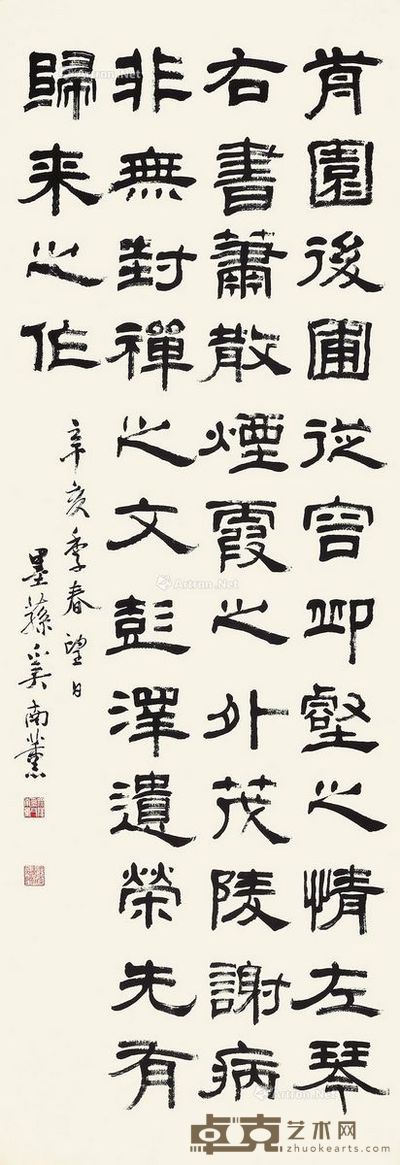 前園後圃從容丘壑之情左琴
右書蕭散煙霞之外茂陵謝病
非無封禪之文彭澤遺榮先有
歸来之作
辛亥季春望日
墨蓀奚南薰
Artron.Net
卓克艺术网
zhuokearts.com